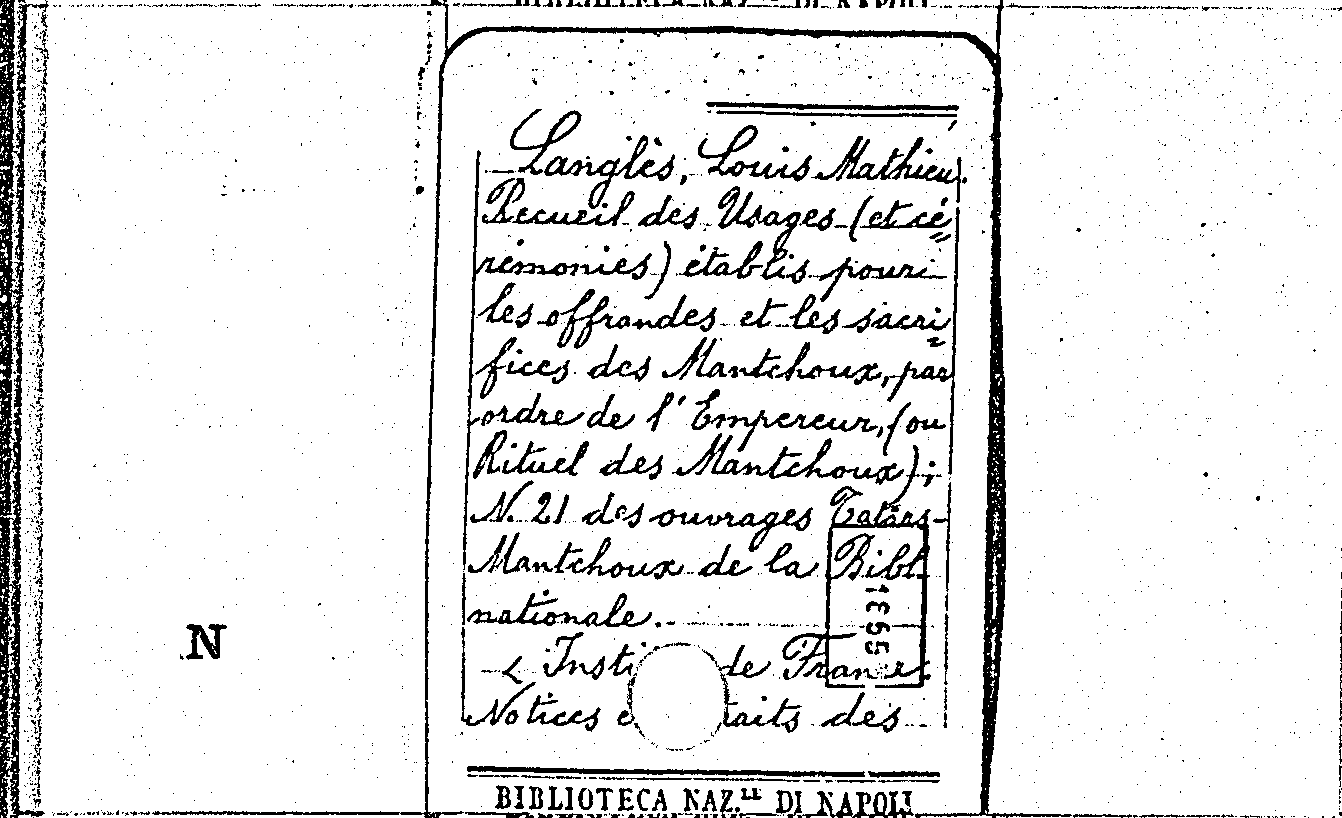 BIBLIOTECA NAZ.LE DI NAPOLI
Langlès, Louis Mathieu.
Recueil des Usages (et cé
rémonies) établis pour
les offrandes et les sacri
fices des Mantchoux, par
ordre de l'Empereur, (ou
Rituel des Mantchoux);
N. 21 des ouvrages Tatars-
Mantchoux de la Bibl.
nationale.
1655
N
< Insti de France.
Notices e traits des
BIBLIOTECA NAZ.LE DI NAPOLI